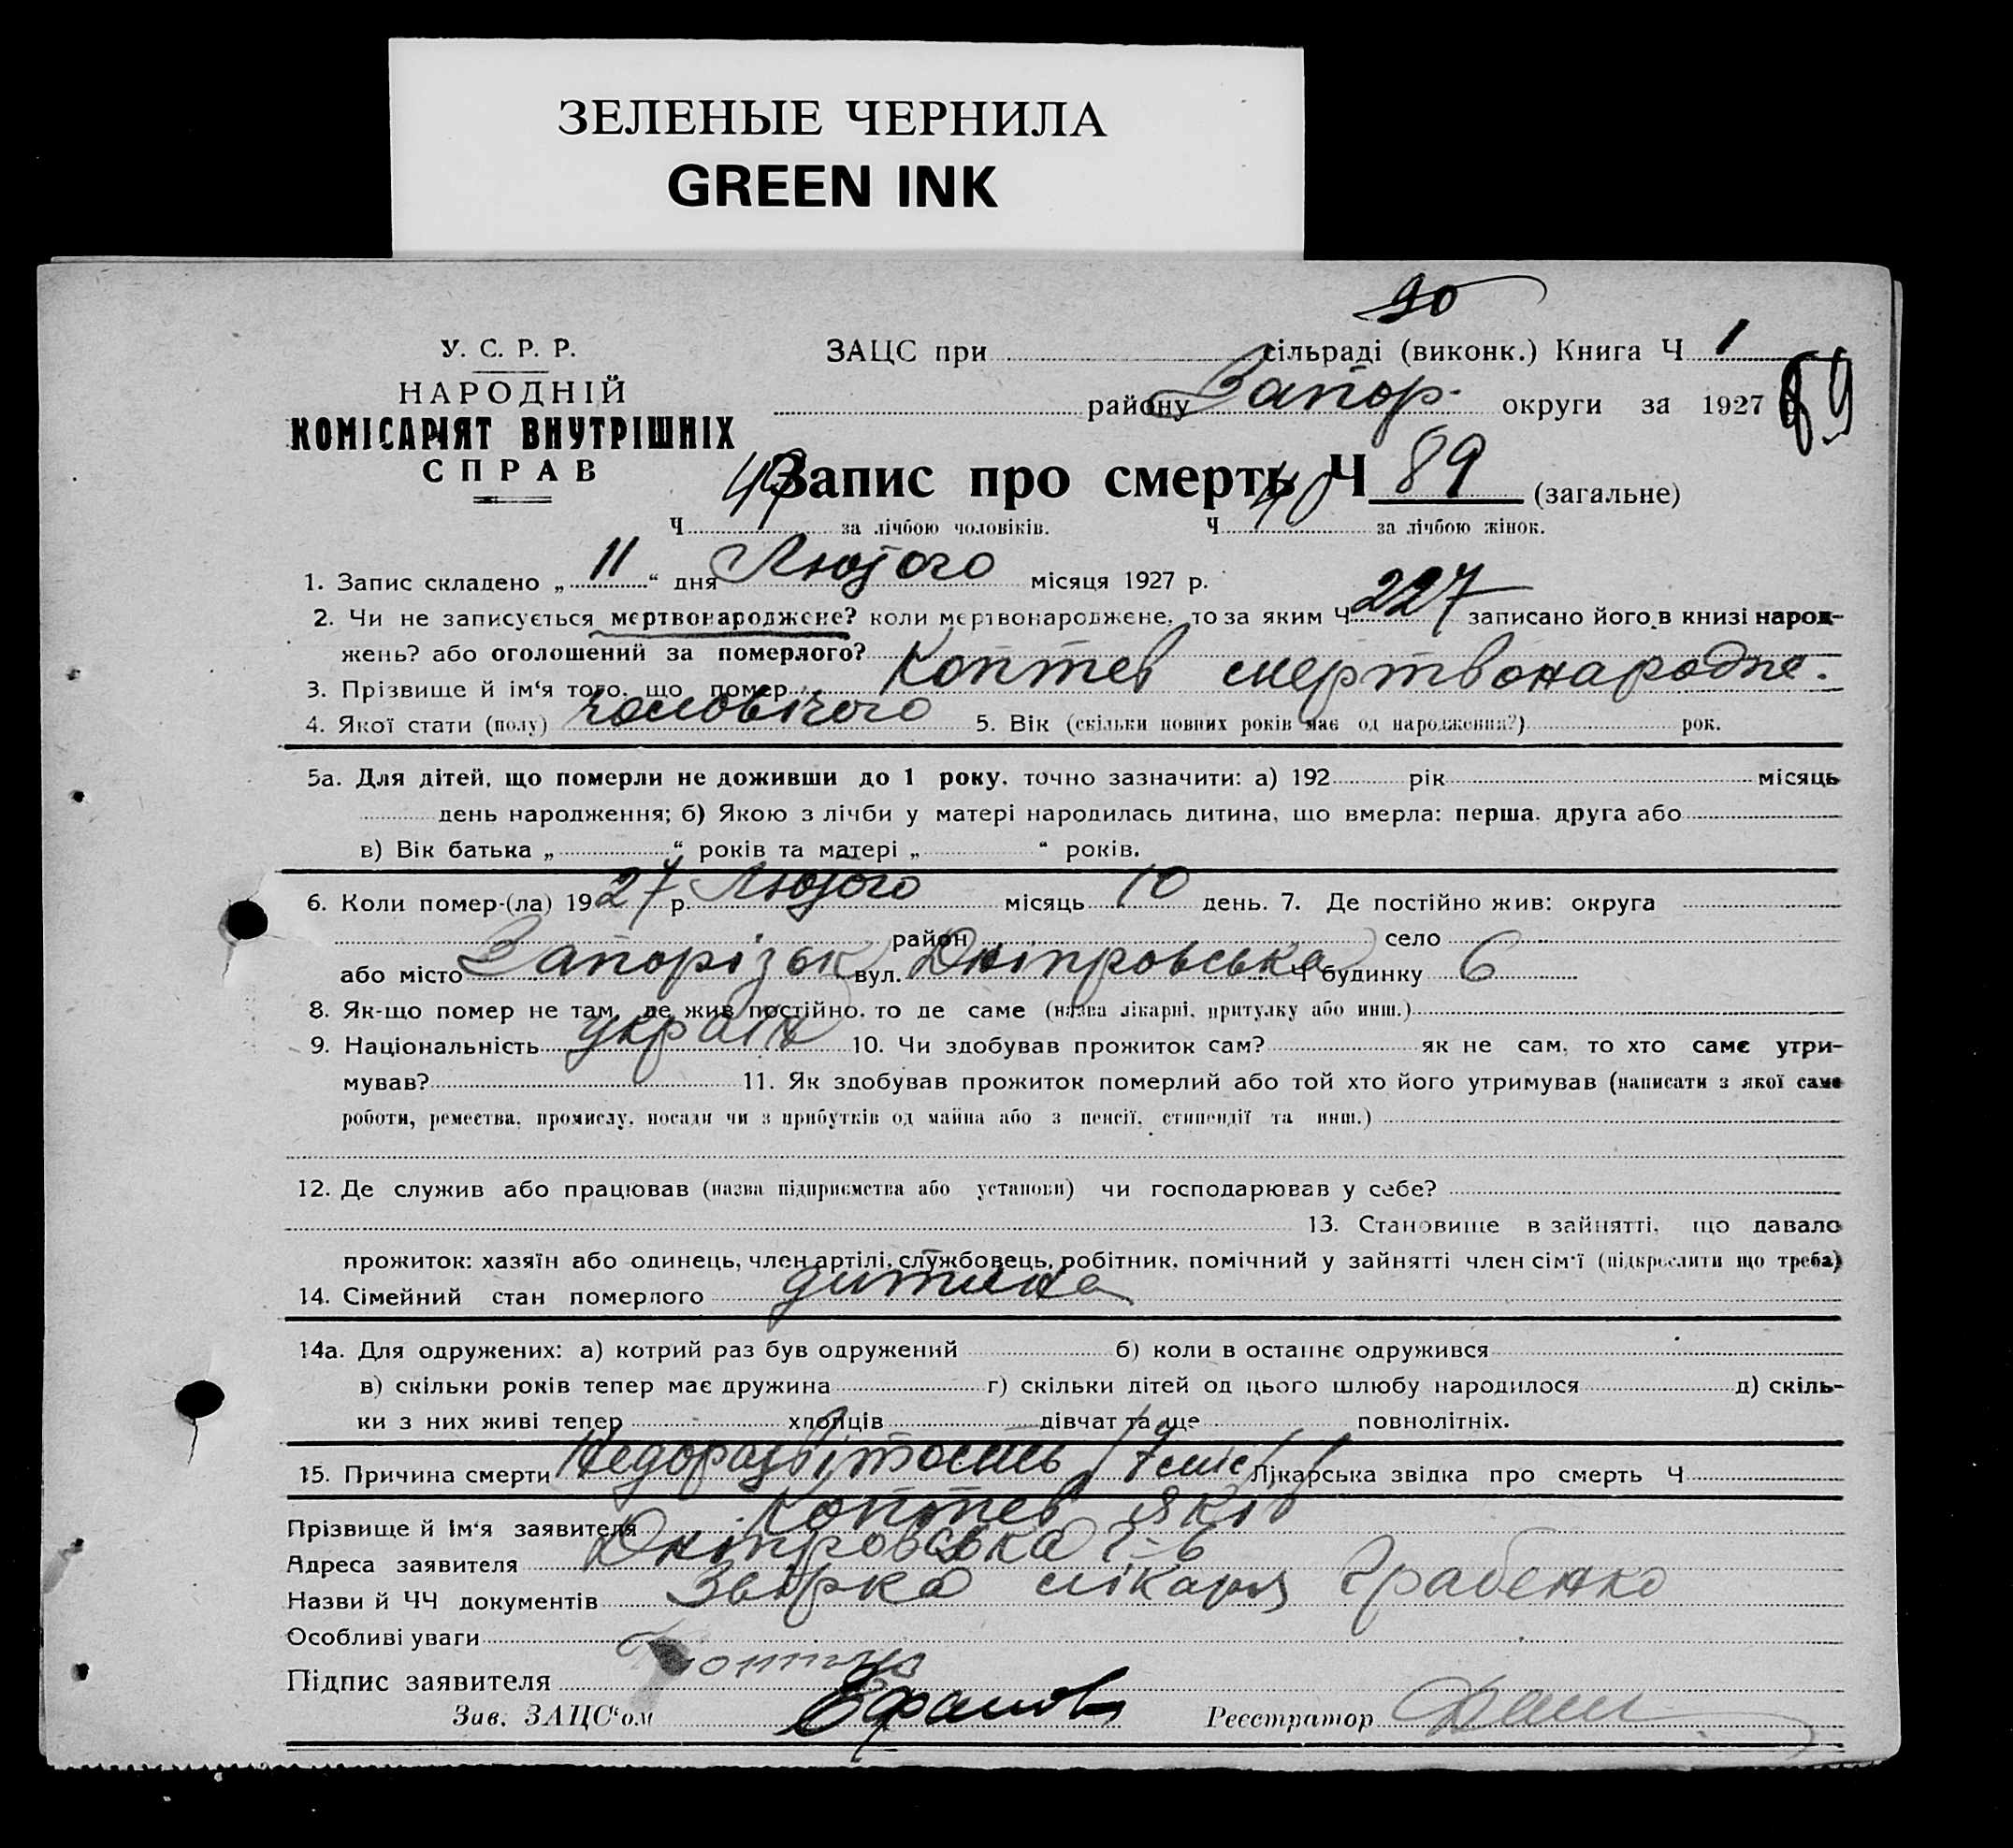 ЗЕЛЕНЫЕ ЧЕРНИЛА
GREEN INK
90
У. С. Р. Р.
НАРОДНІЙ
КОМІСАРІЯТ ВНУТРІШНІХ
СПРАВ
ЗАЦС при сільраді (виконк.) Книга Ч 1
району Запор. округи за 1927
89
Запис про смерть Ч 89 (загальне)
Ч 49 за лічбою чоловіків. Ч 40 за лічбою жінок.
1. Запис складено „ 11 “ дня Лютого місяця 1927 р.
2. Чи не записується мертвонароджене? коли мертвонароджене, то за яким Ч 227 записано його в книзі народ-
жень? або оголошений за померлого?
3. Прізвище й ім‘я того, що помер Коптев мертвонародже.
4. Якої стати (полу) чоловічого 5. Вік (скільки повних років має од народження?) рок.
5а. Для дітей, що померли не доживши до 1 року, точно зазначити: а) 192 рік місяць
день народження; б) Якою з лічби у матері народилась дитина, що вмерла: перша, друга або
в) Вік батька „ “ років та матері „ “ років.
6. Коли помер-(ла) 1927 р. Лютого місяць 10 день. 7. Де постійно жив: округа
район село
або місто Запоріжжя вул. Дніпровська Ч будинку 6
8. Як-що помер не там, де жив постійно, то де саме (назва лікарні, притулку або инш.)
9. Національність україн 10. Чи здобував прожиток сам? як не сам, то хто саме утри-
мував? 11. Як здобував прожиток померлий або той хто його утримував (написати з якої саме
роботи, ремества, промислу, посади чи з прибутків од майна або з пенсії, стипендії та инш.)
12. Де служив або працював (назва підприємства або установи) чи господарював у себе?
13. Становище в зайнятті, що давало
прожиток: хазяїн або одинець, член артілі, службовець, робітник, помічний у зайнятті член сім‘ї (підкреслити що треба)
14. Сімейний стан померлого дитина
14а. Для одружених: а) котрий раз був одружений б) коли в останнє одружився
в) скільки років тепер має дружина г) скільки дітей од цього шлюбу народилося д) скіль-
ки з них живі тепер хлопців дівчат та ще повнолітніх.
15. Причина смерти Недоразвітость /7 міс/ Лікарська звідка про смерть Ч
Прізвище й Ім‘я заявителя Коптев Яків
Адреса заявителя Дніпровська ч-6
Назви й ЧЧ документів Звірка лікаря Грабенко
Особливі уваги
Підпис заявителя
Зав. ЗАЦС‘ом Реєстратор